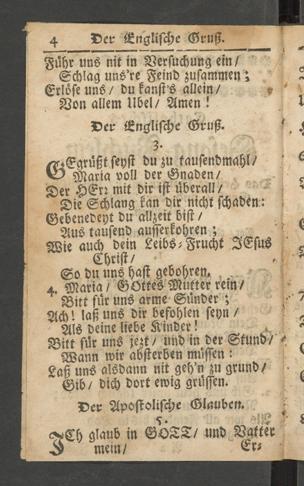 4 Der Englische Gruß.
Führ uns nit in Versuchung ein/
Schlag uns're Feind zusammen;
Erlöse uns/ du kanst's allein/
Von allem Ubel/ Amen!
Der Englische Gruß.
3.
GEgrüßt seyst du zu tausendmahl/
Maria voll der Gnaden/
Der HErr mit dir ist überall/
Die Schlang kan dir nicht schaden:
Gebenedeyt du allzeit bist/
Aus tausend ausserkohren;
Wie auch dein Leibs-Frucht JEsus
Christ/
So du uns hast gebohren.
4. Maria/ GOttes Mutter rein/
Bitt für uns arme Sünder;
Ach! laß uns dir befohlen seyn/
Als deine liebe Kinder!
Bitt für uns jezt/ und in der Stund/
Wann wir absterben müssen:
Laß uns alsdann nit geh'n zu grund/
Gib/ dich dort ewig grüssen.
Der Apostolische Glauben.
5.
ICh glaub in GOTT/ und Vatter
mein/ Er-